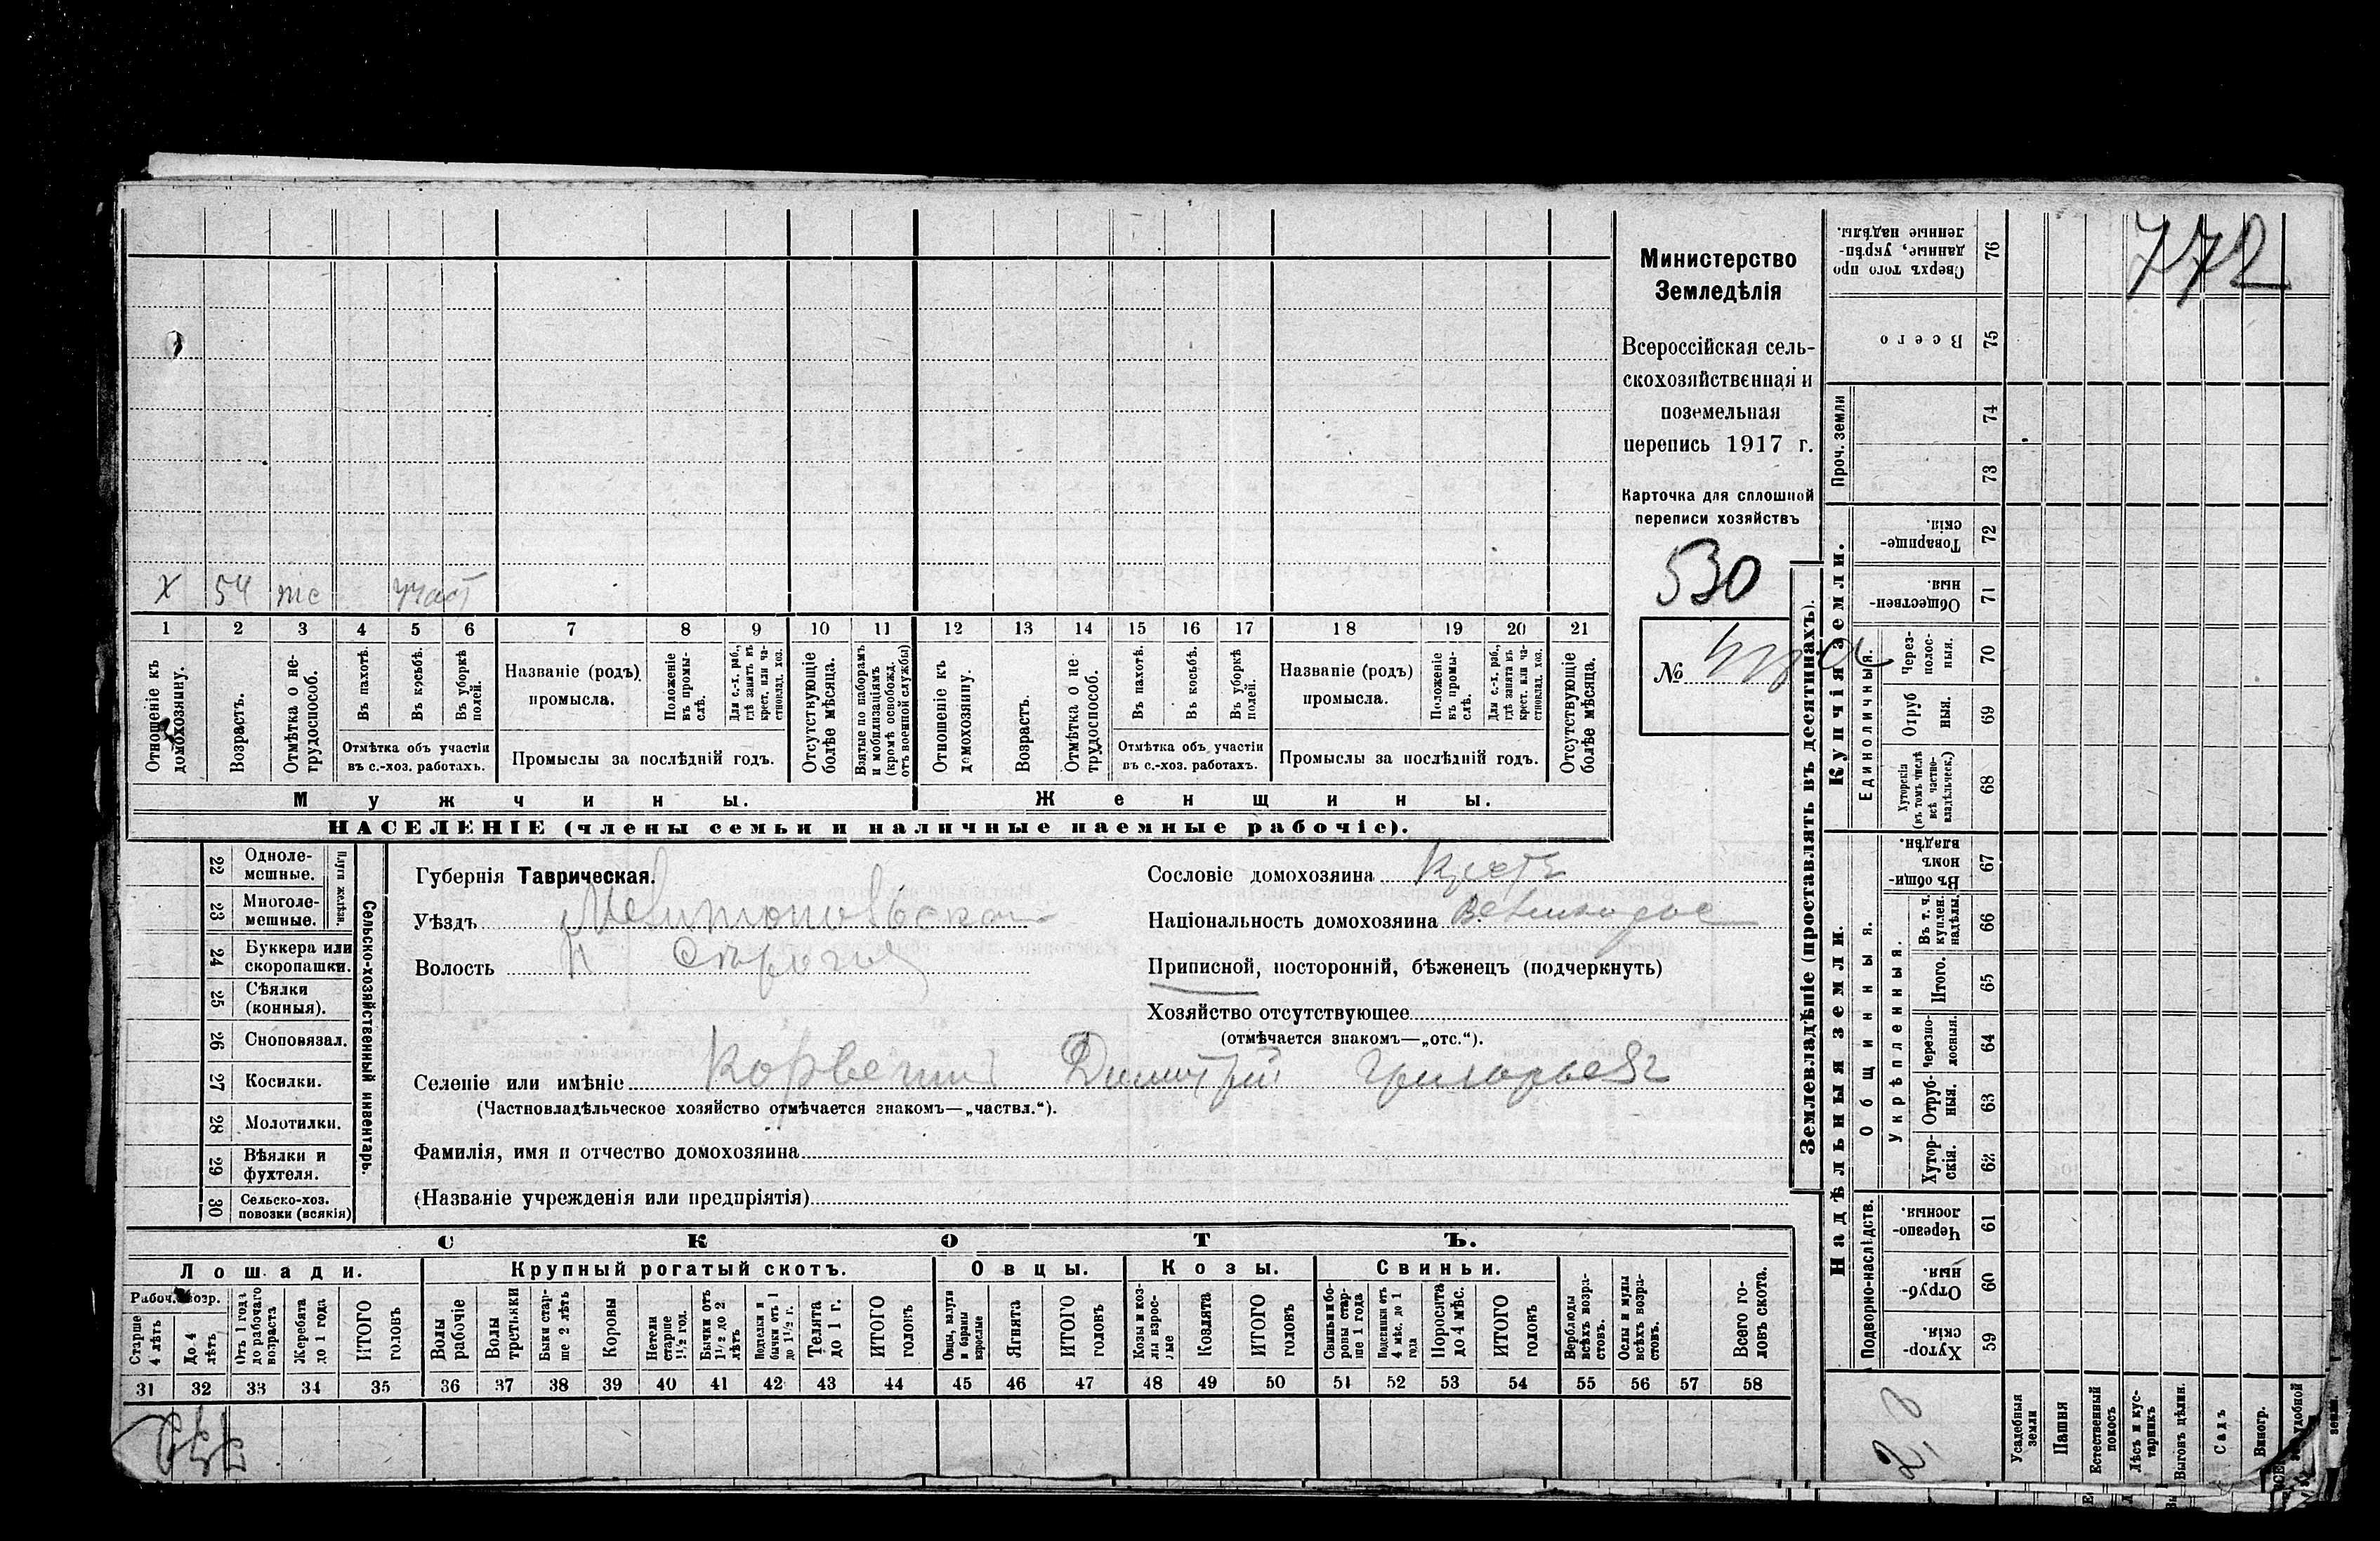 Министерство
Земледѣлія
Всероссійская сель-
скохозяйственная и
поземельная
перепись 1917 г.
Карточка для сплошной
переписи хозяйствъ
530
№
772
х 54 участ
1 2 3 4 5 6 7 8 9 10 11 12 13 14 15 16 17 18 19 20 21
Отношеніе къ домохозяину.
Возрастъ.
Отмѣтка о не-трудоспособ.
Въ пахотѣ.
Въ косьбѣ.
Въ уборкѣ полей.
Отмѣтка объ участіи
въ с.-хоз. работахъ.
Названіе (родъ)
промысла.
Положеніе въ промы-слѣ.
Для с.-х. раб., гдѣ занятъ въ крест. или ча-стновлад. хоз.
Промыслы за послѣдній годъ.
Отсутствующіе болѣе мѣсяца.
Взятые по наборамъ и мобилизаціямъ (кромѣ освобожд. отъ военной службы)
Отношеніе къ домохозяину.
Возрастъ.
Отмѣтка о не трудоспособ.
Въ пахотѣ.
Въ косьбѣ.
Въ уборкѣ полей.
Отмѣтка объ участіи
въ с.-хоз. работахъ.
Названіе (родъ)
промысла.
Положеніе въ промы-слѣ.
Для с.-х. раб., гдѣ занята въ крест. или ча-стновлад. хоз.
Промыслы за послѣдній годъ.
Отсутствующіе болѣе мѣсяца.
Мужчины.
Женщины.
НАСЕЛЕНІЕ (члены семьи и наличные наемные рабочіе).
22 Одноле-мешные.
23 Многоле-мешные.
Плуги желѣзн.
24 Буккера или скоропашки.
25 Сѣялки (конныя).
26 Сноповязал.
27 Косилки.
28 Молотилки.
29 Вѣялки и фухтеля.
30 Сельско-хоз. повозки (всякія)
Сельско-хозяйственный инвентарь.
Губернія Таврическая.
Уѣздъ Мелитопольскій
Волость
Селеніе или имѣніе Дмитрій Григорьев
(Частновладѣльческое хозяйство отмѣчается знакомъ—„частвл.“).
Фамилія, имя и отчество домохозяина
(Названіе учрежденія или предпріятія)
Сословіе домохозяина Крест
Національность домохозяина Великорос
Приписной, посторонній, бѣженецъ (подчеркнуть)
Хозяйство отсутствующее
(отмѣчается знакомъ—„отс.“).
СКОТЪ.
Лошади.
Крупный рогатый скотъ.
Овцы.
Козы.
Свиньи.
Рабоч. возр.
Старше 4 лѣтъ
До 4 лѣтъ
Отъ 1 года до рабочаго возраста
Жеребята до 1 года
ИТОГО головъ
Волы рабочіе
Волы третьяки
Быки стар-ше 2 лѣтъ
Коровы
Нетели старше 1½ год.
Бычки отъ 1½ до 2 лѣтъ
Водѣлки и бычки отъ 1 до 1½ г.
Телята до 1 г.
ИТОГО головъ
Овцы, валухи и бараны взрослые
Ягнята
ИТОГО головъ
Козы и коз-лы взрос-лые
Козлята
ИТОГО головъ
Свиньи и бо-ровы стар-ше 1 года
Подсвинки отъ 4 мѣс. до 1 года
Поросята до 4 мѣс.
ИТОГО головъ
Верблюды всѣхъ возра-стовъ.
Ослы и мулы всѣхъ возра-стовъ.
Всего го-ловъ скота.
31 32 33 34 35 36 37 38 39 40 41 42 43 44 45 46 47 48 49 50 51 52 53 54 55 56 57 58
Землевладѣніе (проставлять въ десятинахъ).
Надѣльныя земли.
Купчія земли.
Проч. земли
Подворно-наслѣдств.
Общинныя.
Укрѣпленныя.
Единоличныя.
76 Сверхъ того про данные, укрѣп-ленные надѣлы.
75 Всего
74
73
72 Товарище-скія.
71 Обществен-ныя.
70 Через-полос-ныя.
69 Отруб ныя.
68 Хуторскія (въ томъ числѣ всѣ частно-владѣльческ.)
67 Въ общи-номъ владѣн.
66 Въ т. ч. куплен. надѣлы.
65 Итого.
64 Черезпо-лосныя.
63 Отруб-ныя.
62 Хутор-скія.
61 Черезпо-лосныя.
60 Отруб-ныя.
59 Хутор-скія.
Усадебныя земли
Пашня
Естественный покосъ
Лѣсъ и кус-тарникъ
Выгонъ цѣлин.
Садъ
Виногр.